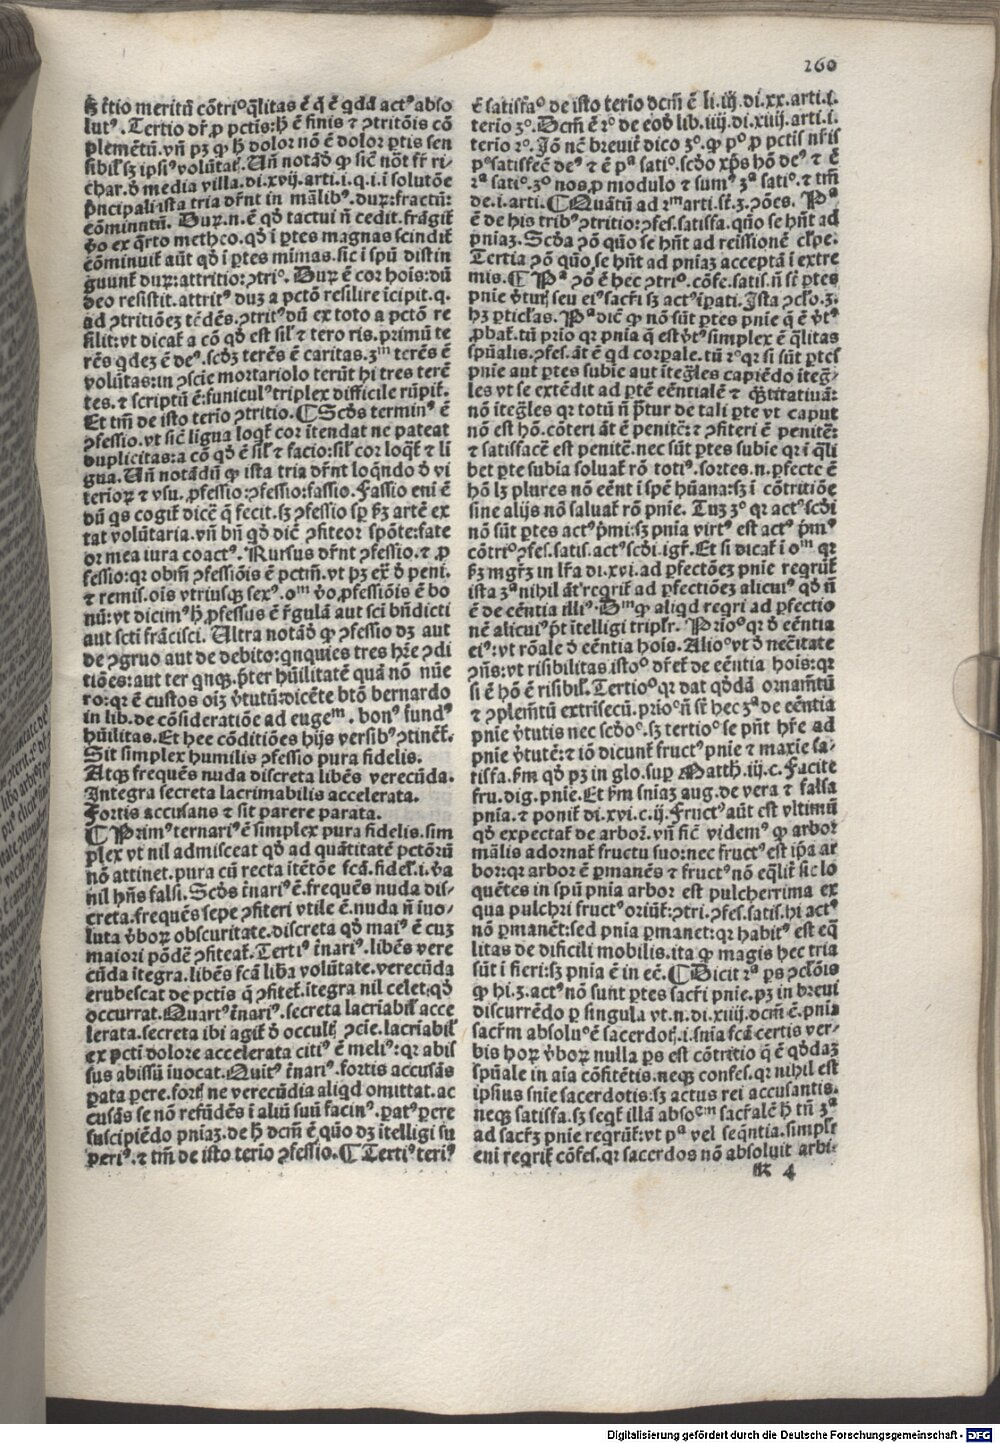 260
ꝫ t̃tio meritũ cõtriꝰ q̃litas ẽ q̃ ẽ qdã actꝰ abso
lutꝰ. Tertio dr̃ ꝓ pctis: h̃ ẽ finis ⁊ ꝯtritõis cõ
plemẽtũ. vñ pꝫ ꝙ h̃ dolor nõ ẽ dolor ptis sen
sibil̃ sꝫ ipsiꝰ volũtat̃. Uñ notãd̃ ꝙ sic̃ nõt fr̃ ri-
char. d̃ media villa. di. xvij. arti. i. q. i. i solutõe
p̃ncipali ista tria dr̃nt in mãlibꝰ. durꝫ: fractum:
cõminutũ. Durꝫ. n. ẽ qd̃ tactui ñ cedit. frãgit̃
v̊o ex q̃rto metheo. qd̃ i ptes magnas scindit̃
cõminuit̃ aũt qd̃ i ptes mimas. sic i spũ distin
guunt̃ durꝫ: attritio: ꝯtriº. Durꝫ ẽ cor hois: dũ
deo resistit. attritꝰ duꝫ a pctõ resilire icipit. q.
ad ꝯtritiõeꝫ tẽdẽs. ꝯtritꝰ dũ ex toto a pctõ re
silit: vt dicat̃ a cõ qd̃ est sil̃ ⁊ tero ris. primũ te
rẽs qdeꝫ ẽ deꝰ. scd̃ꝫ terẽs ẽ caritas. 3ᵐ terẽs ẽ
volũtas: in ꝯscie mortariolo terũt hi tres terẽ
tes. ⁊ scriptũ ẽ: funiculꝰ triplex difficile rũpit̃.
Et tm̃ de isto terio ꝯtritio. ¶ Scd̃s terminꝰ ẽ
ꝯfessio. vt sic̃ ligua loqt̃ cor itendat ne pateat
duplicitas: a cõ qd̃ ẽ sil̃ ⁊ facio: sil̃ cor loqt̃ ⁊ li
gua. Uñ notãdũ ꝙ ista tria dr̃nt loqñdo d̃ vi
terioꝝ ⁊ vsu. ꝓfessio: ꝯfessio: fassio. Fassio eni ẽ
dũ qs cogit̃ dicẽ q̃ fecit. sꝫ ꝯfessio sp̃ ẜꝫ artẽ ex
tat volũtaria. vñ bñ qd̃ dic̃ ꝯfiteor spõte: fate
or mea iura coactꝰ. Rursus dr̃nt ꝯfessio. ⁊ ꝓ
fessio: qꝛ obm̃ ꝯfessiõis ẽ pctm̃. vt pꝫ ex̃ d̃ peni.
⁊ remis. ois vtriusqꝫ sexꝰ. oᵐ v̊o ꝓfessiõis ẽ bo
nũ: vt dicimꝰ h̃ ꝓfessus ẽ r̃gulã aut sci bñdicti
aut scti frãcisci. Ultra notãd̃ ꝙ ꝯfessio dꝫ aut
de ꝯgruo aut de debito: qnquies tres hr̃e ꝯdi
tiões: aut ter qnqꝫ. p̃ter hũilitatẽ quã nõ nũe
ro: qꝛ ẽ custos oiꝫ v̊tutũ: dicẽte btõ bernardo
in lib. de cõsideratiõe ad eugeᵐ. bonꝰ fundꝰ
hũilitas. Et hee cõditiões hijs versibꝰ ꝯtinet̃.
Sit simplex humilis ꝯfessio pura fidelis.
Atqꝫ frequẽs nuda discreta libẽs verecũda.
Integra secreta lacrimabilis accelerata.
Fortis accusans ⁊ sit parere parata.
¶ Primꝰ ternariꝰ ẽ simplex pura fidelis. sim
plex vt nil admisceat qd̃ ad quãtitatẽ pctõrũ
nõ attinet. pura cũ recta itẽtõe fcã. fidel̃. i. v̊a
nil hñs falsi. Scd̃s t̃nariꝰ ẽ. frequẽs nuda dis-
creta. frequẽs sepe ꝯfiteri vtile ẽ. nuda ñ iuo-
luta v̊boꝝ obscuritate. discreta qd̃ maiꝰ ẽ cuꝫ
maiori põdẽ ꝯfiteat̃. Tertiꝰ t̃nariꝰ. libẽs vere
cũda itegra. libẽs fcã liba volũtate. verecũda
erubescat de pctis q̃ ꝯfitet̃. itegra nil celet: qd̃
occurrat. Quartꝰ t̃nariꝰ. secreta lacriabil̃ acce
lerata. secreta ibi agit̃ d̃ occultꝭ ꝯcie. lacriabil̃
ex pcti dolore accelerata citiꝰ ẽ meliꝰ: qꝛ abis
sus abissũ iuocat. Quitꝰ t̃nariꝰ. fortis accusãs
pata pere. fortꝭ ne verecũdia aliqd omittat. ac
cusãs se nõ refũdẽs i aliũ suũ facinꝰ. patꝰ pere
suscipiẽdo pniaꝫ. de h̃ dcm̃ ẽ quõ dꝫ itelligi su
periꝰ. ⁊ tm̃ de isto terio ꝯfessio. ¶ Tertiꝰ teriꝰ
ẽ satisfaº de isto terio dcm̃ ẽ li. iiij. di. xx. arti. i.
terio 3º. Dcm̃ ẽ 2º de eod̃ lib. iiij. di. xiiij. arti. i.
terio 2º. Jõ nc̃ breuit̃ dico 3º. ꝙ pº ꝓ pctis nr̃is
pᵉ satisfeẽ deꝰ ⁊ ẽ pᵃ satiº. scd̃o xp̃s hõ deꝰ ⁊ ẽ
2ᵃ satiº. 3º nos ꝓ modulo ⁊ sumꝰ 3ᵃ satiº. ⁊ tm̃
de. i. arti. ¶ Quãtũ ad 2ᵐ arti. sr̃. 3. ꝯões. Pᵃ
ẽ de his tribꝰ ꝯtritio: ꝯfes. satisfa. quõ se hñt ad
pniaꝫ. Scd̃a ꝯõ quõ se hñt ad reissionẽ clspe.
Tertia ꝯõ quõ se hñt ad pniaꝫ acceptã i extre
mis. ¶ Pᵃ ꝯõ ẽ hec ꝯtriº. cõfe. satis. ñ sr̃ ptes
pnie v̊tutꝭ seu eiꝰ sacr̃i sꝫ actꝰ ip̃ati. Ista ꝯcl̃o. 3.
hꝫ pticl̃as. Pᵃ dic̃ ꝙ nõ sũt ptes pnie q̃ ẽ v̊tꝰ
ꝓbat̃. tũ prio qꝛ pnia q̃ est v̊tꝰ simplex ẽ q̃litas
spũalis. ꝯfes. ãt ẽ qd corpale. tũ 2º qꝛ si sũt ptes
pnie aut ptes subie aut iteg̃les capiẽdo iteg̃-
les vt se extẽdit ad ptẽ eẽntialẽ ⁊ q̃titatiuã:
nõ iteg̃les qꝛ totũ ñ p̃tur de tali pte vt caput
nõ est hõ. cõteri ãt ẽ penitẽ: ⁊ ꝯfiteri ẽ penitẽ:
⁊ satisfacẽ est penitẽ. nec sũt ptes subie qꝛ i q̃li
bet pte subia soluat̃ rõ totiꝰ. sortes. n. pfecte ẽ
hõ lꝫ plures nõ eẽnt i spẽ hũana: sꝫ i cõtritiõe
sine alijs nõ saluat̃ rõ pnie. Tuꝫ 3º qꝛ actꝰ scd̃i
nõ sũt ptes actꝰ p̃mi: sꝫ pnia virtꝰ est actꝰ p̃mꝰ
cõtriº ꝯfes. satis. actꝰ scd̃i. igr̃. Et si dicat̃ i oᵐ qꝛ
ẜꝫ mgr̃ꝫ in lr̃a di. xvi. ad pfectõeꝫ pnie reqrũt̃
ista 3ᵃ nihil ãt reqrit̃ ad pfectiõeꝫ alicuiꝰ qd̃ ñ
ẽ de eẽntia illiꝰ. Dᵐ ꝙ aliqd reqri ad pfectio
nẽ alicui p̃t itelligi triplr̃. Prioº qꝛ d̃ eẽntia
eiꝰ: vt rõale d̃ eẽntia hois. Alioº vt d̃ nec̃itate
ꝯñs: vt risibilitas istoº dr̃ eẽ de eẽntia hois: qꝛ
si ẽ hõ ẽ risibil̃. Tertioº qꝛ dat qd̃dã ornam̃tũ
⁊ ꝯplem̃tũ extrisecũ. prioº ñ sr̃ hec 3ᵃ de eẽntia
pnie v̊tutis nec scd̃oº. sꝫ tertioº se pñt hr̃e ad
pnie v̊tutẽ: ⁊ iõ dicunt̃ fructꝰ pnie ⁊ maxie sa-
tisfa. ẜm qd̃ pꝫ in glo. sup Matth. iij. c. Facite
fru. dig. pnie. Et ẜm sniaꝫ aug. de vera ⁊ falsa
pnia. ⁊ ponit̃ di. xvi. c. ij. Fructꝰ aũt est vltimũ
qd̃ expectat̃ de arborꝫ. vñ sic̃ videmꝰ ꝙ arbor
mãlis adornat̃ fructu suo: nec fructꝰ est ip̃a ar
bor: qꝛ arbor ẽ pmanẽs ⁊ fructꝰ nõ eq̃lit̃ sic lo
quẽtes in spũ pnia arbor est pulcherrima ex
qua pulchri fructꝰ oriũt̃: ꝯtri. ꝯfes. satis. hi actꝰ
nõ pmanẽt: sed pnia pmanet: qꝛ habitꝰ est eq̃
litas de dificili mobilis. ita ꝙ magis hec tria
sũt i fieri: sꝫ pnia ẽ in eẽ. ¶ Dicit 2ᵃ ps ꝯcl̃õis
ꝙ hi. 3. actꝰ nõ sunt ptes sacr̃i pnie. pꝫ in breui
discurrẽdo p singula vt. n. di. xiiij. dcm̃ ẽ. pnia
sacr̃m absoluᵒ ẽ sacerdotꝭ. i. snia fcã certis ver-
bis hoꝝ v̊boꝝ nulla ps est cõtritio q̃ ẽ qd̃daꝫ
spũale in aia cõfitẽtis. neqꝫ confes. qꝛ nihil est
ipsius snie sacerdotis: sꝫ actus rei accusantis.
neqꝫ satisfa. sꝫ seqt̃ illã absoᵉᵐ sacr̃alẽ h̃ tñ 3ᵃ
ad sacr̃ꝫ pnie reqrũt̃: vt pᵃ vel seq̃ntia. simplr̃
eni reqrit̃ cõfes. qꝛ sacerdos nõ absoluit arbi-
R 4
Digitalisierung gefördert durch die Deutsche Forschungsgemeinschaft - DFG